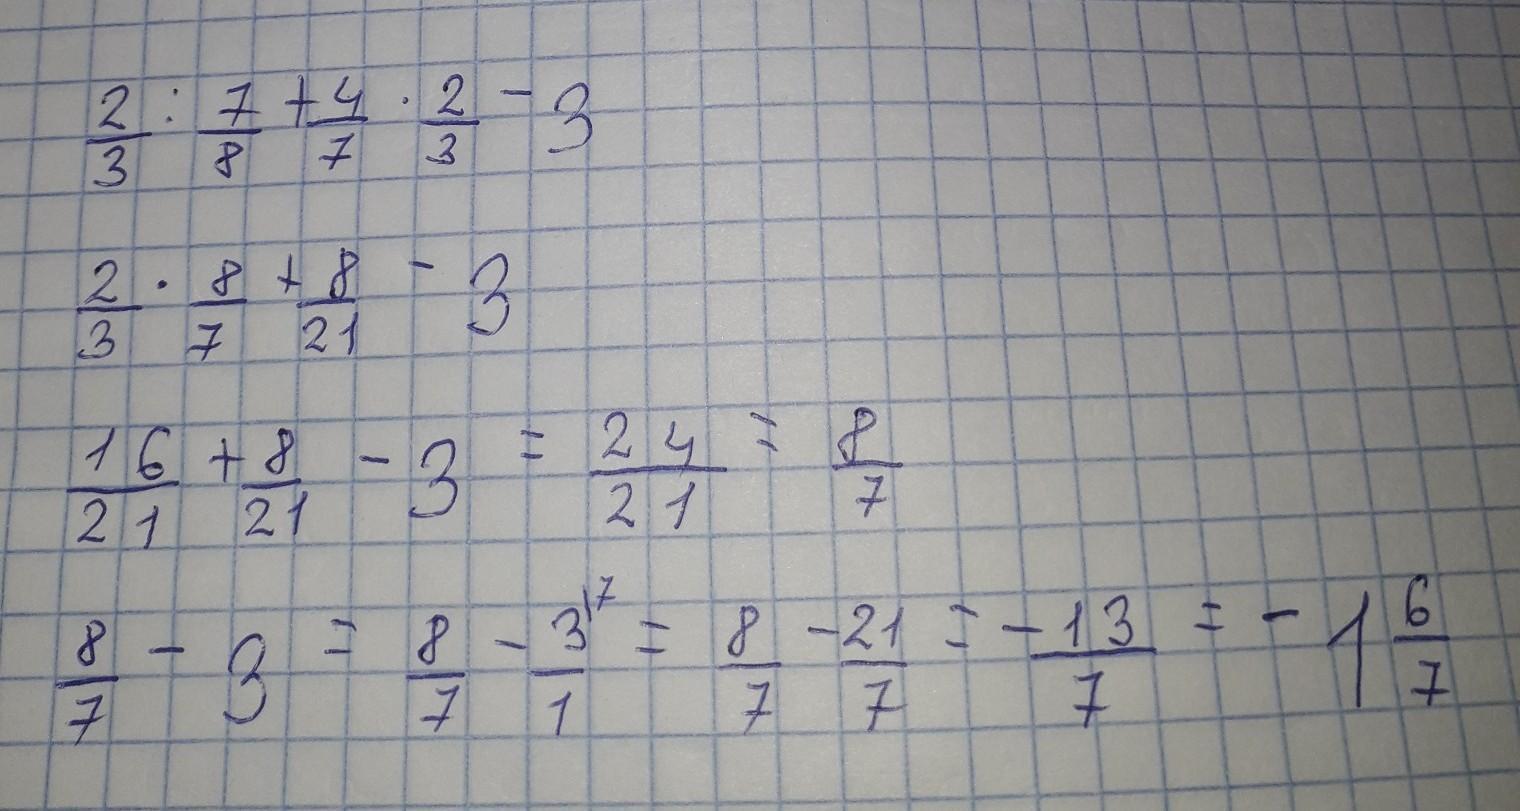 2/3 : 7/8 + 4/7 · 2/3 - 3
2/3 · 8/7 + 8/21 - 3
16/21 + 8/21 - 3 = 24/21 = 8/7
8/7 - 3 = 8/7 - 3/1 ⁽⁷ = 8/7 - 21/7 = -13/7 = - 1 6/7